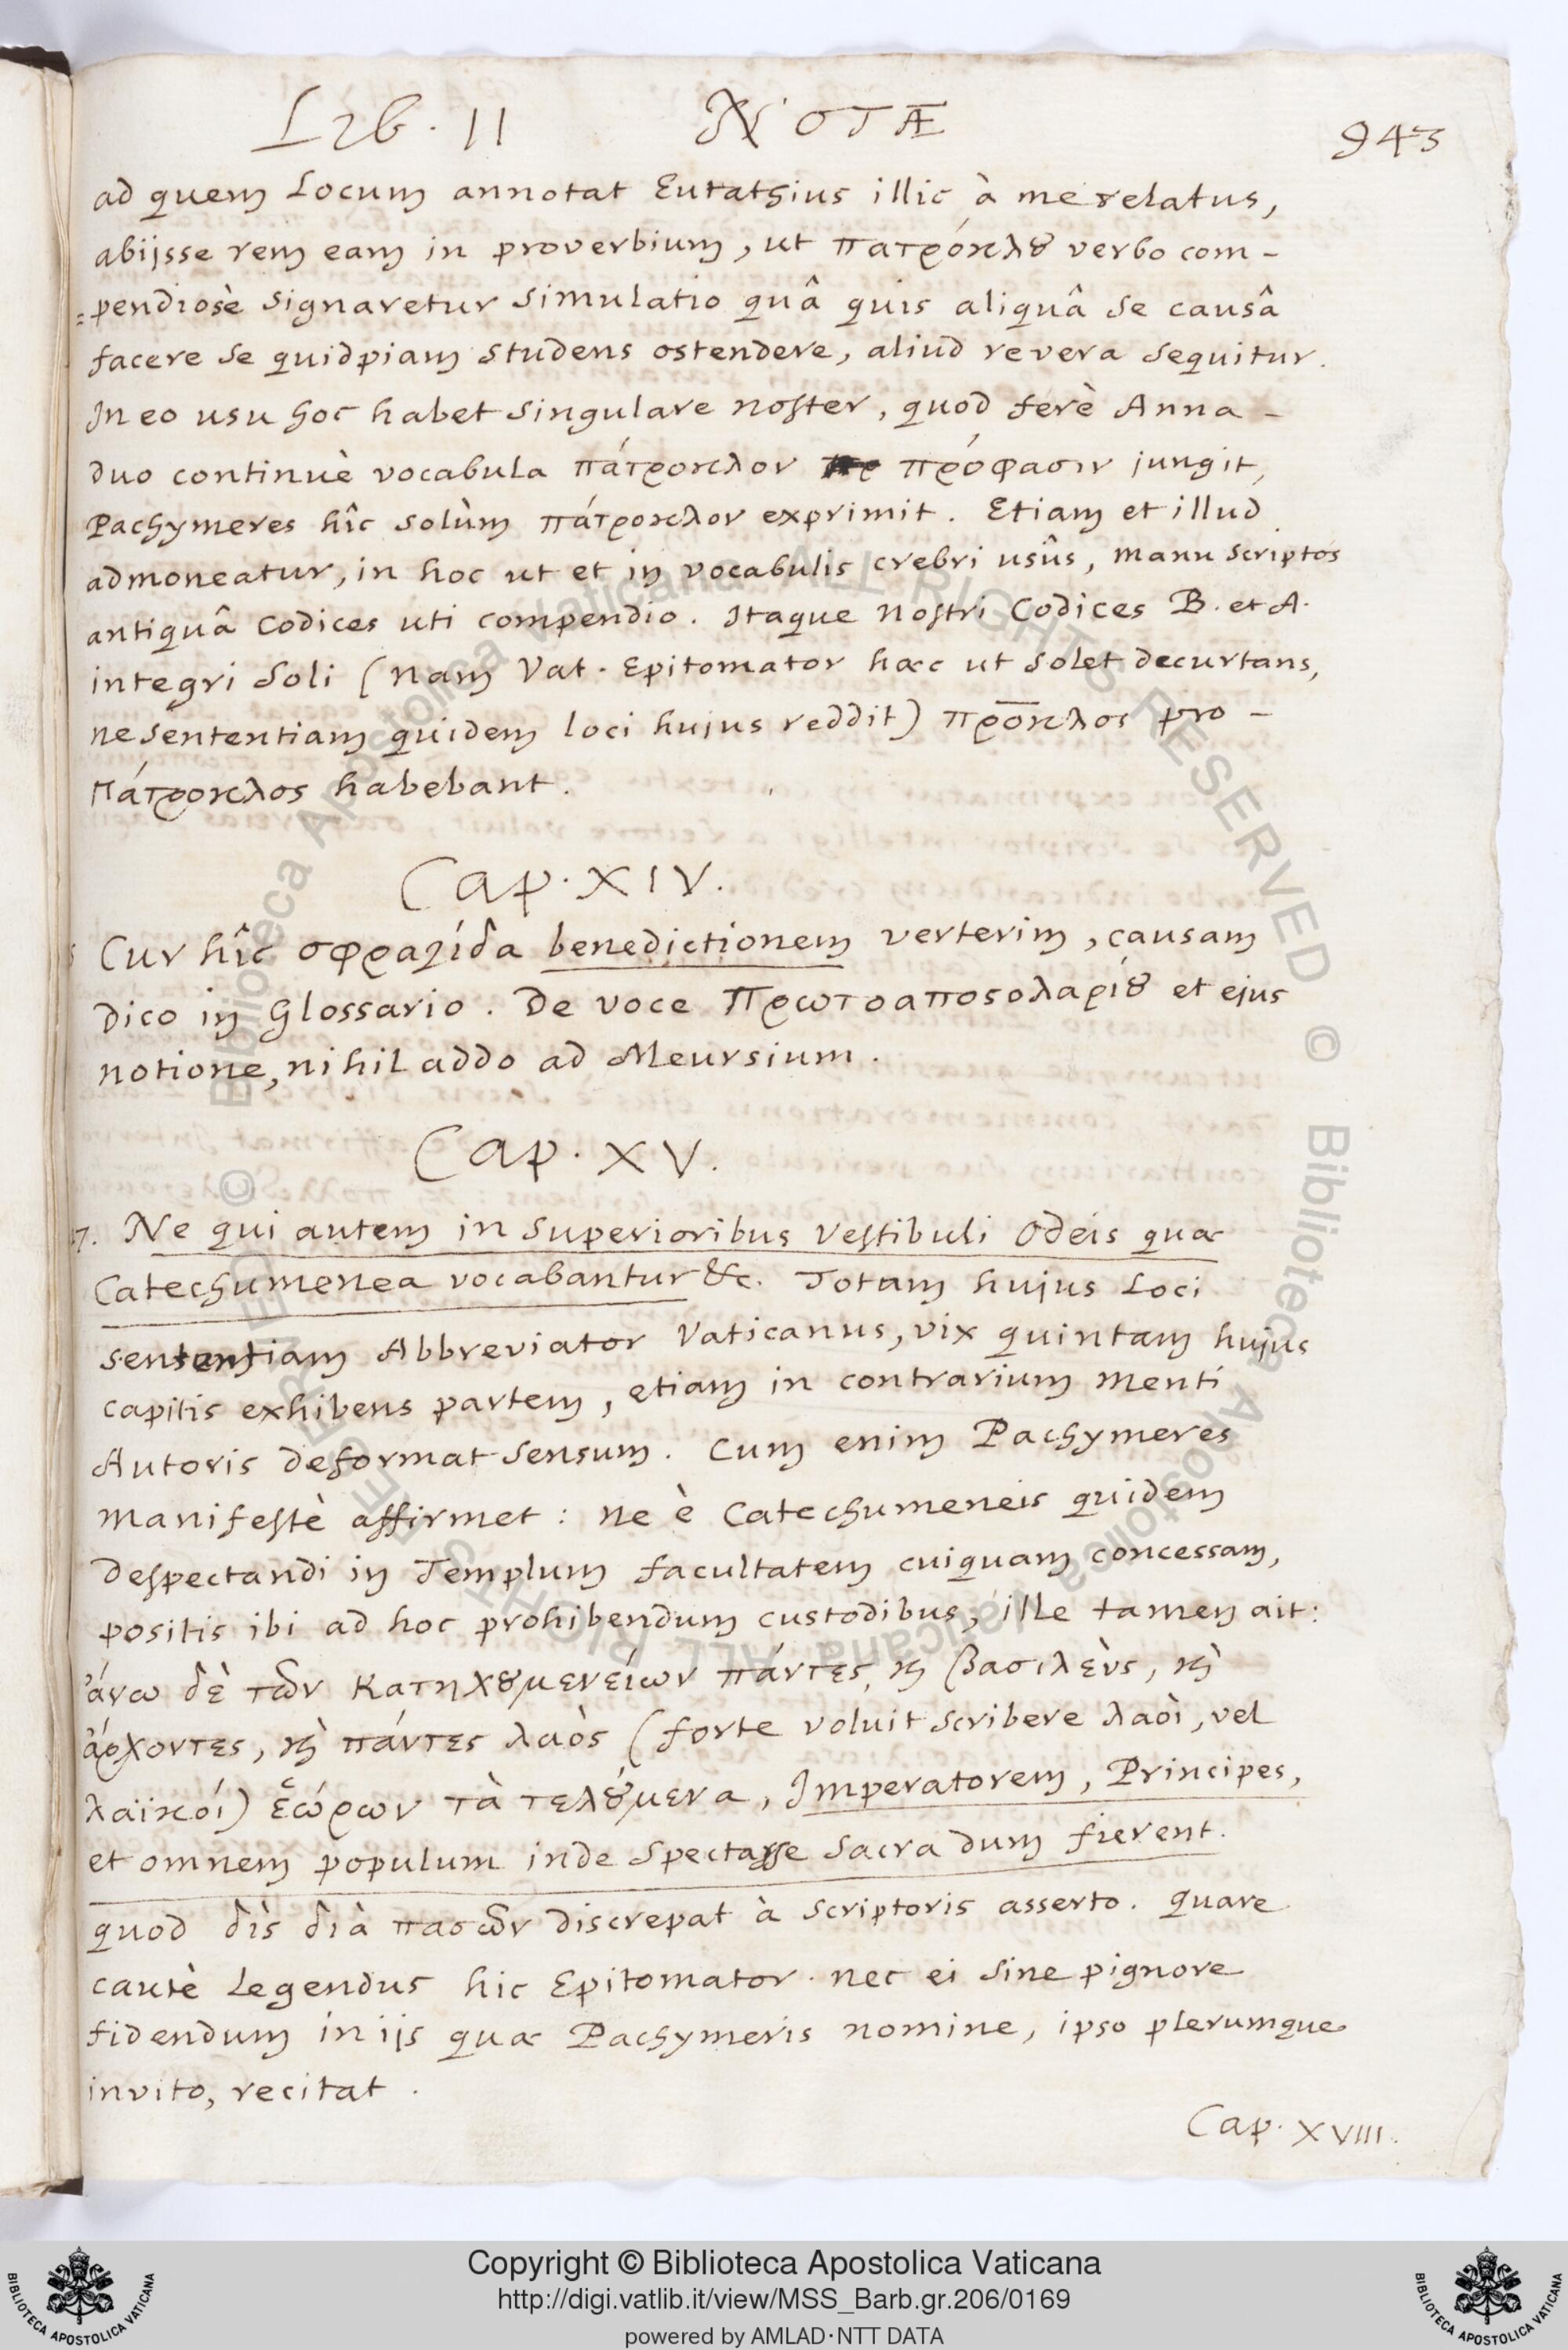 Lib. II NOTÆ 943
ad quem Locum annotat Eutathius illic à me relatus,
abijsse rem eam in proverbium, ut πατρόκλȣ verbo com-
=pendiosè signaretur simulatio quâ quis aliquâ se causâ
facere se quidpiam studens ostendere, aliud revera sequitur.
In eo usu hoc habet singulare noster, quod ferè Anna-
duo continuè vocabula πάτροκλον πρόφασιν jungit,
Pachymeres hîc solùm πάτροκλον exprimit. Etiam et illud
admoneatur, in hoc ut et in vocabulis crebri usûs, manu scriptos
antiquâ Codices uti compendio. Itaque nostri Codices B. et A.
integri soli (nam Vat. Epitomator hæc ut solet decurtans,
ne sententiam quidem loci hujus reddit) πρ̅ο̅κλος pro-
πάτροκλος habebant.
Cap. XIV.
Cur hîc σφραγίδα benedictionem verterim, causam
dico in Glossario. De voce Πρωτοαποϛολαρίȣ et ejus
notione, nihil addo ad Meursium.
Cap. XV.
7. Ne qui autem in superioribus Vestibuli Odeis quæ
Catechumenea vocabantur &c. Totam hujus Loci
sententiam Abbreviator Vaticanus, vix quintam hujus
capitis exhibens partem, etiam in contrarium menti
Autoris deformat sensum. Cum enim Pachymeres
manifestè affirmet: ne è Catechumeneis quidem
despectandi in Templum facultatem cuiquam concessam,
positis ibi ad hoc prohibendum custodibus, ille tamen ait:
ἄνω δὲ τῶν Κατηχȣμενείων πάντες, ϗ βασιλεὺς, ϗ̀
ἄρχοντες, ϗ̀ πάντες λαὸς (forte voluit scribere λαοὶ, vel
λαϊκοί) ἑώρων τὰ τελȣ́μενα, Imperatorem, Principes,
et omnem populum inde spectasse sacra dum fierent.
quod δὶς διὰ πασῶν discrepat à scriptoris asserto. quare
cautè Legendus hic Epitomator. nec ei sine pignore
fidendum in ijs quæ Pachymeris nomine, ipso plerumque
invito, recitat.
Cap. XVIII.
Biblioteca Apostolica Vaticana ALL RIGHTS RESERVED ©
Biblioteca Apostolica Vaticana ALL RIGHTS RESERVED ©
Copyright © Biblioteca Apostolica Vaticana
http://digi.vatlib.it/view/MSS_Barb.gr.206/0169
powered by AMLAD·NTT DATA
BIBLIOTECA APOSTOLICA VATICANA
BIBLIOTECA APOSTOLICA VATICANA